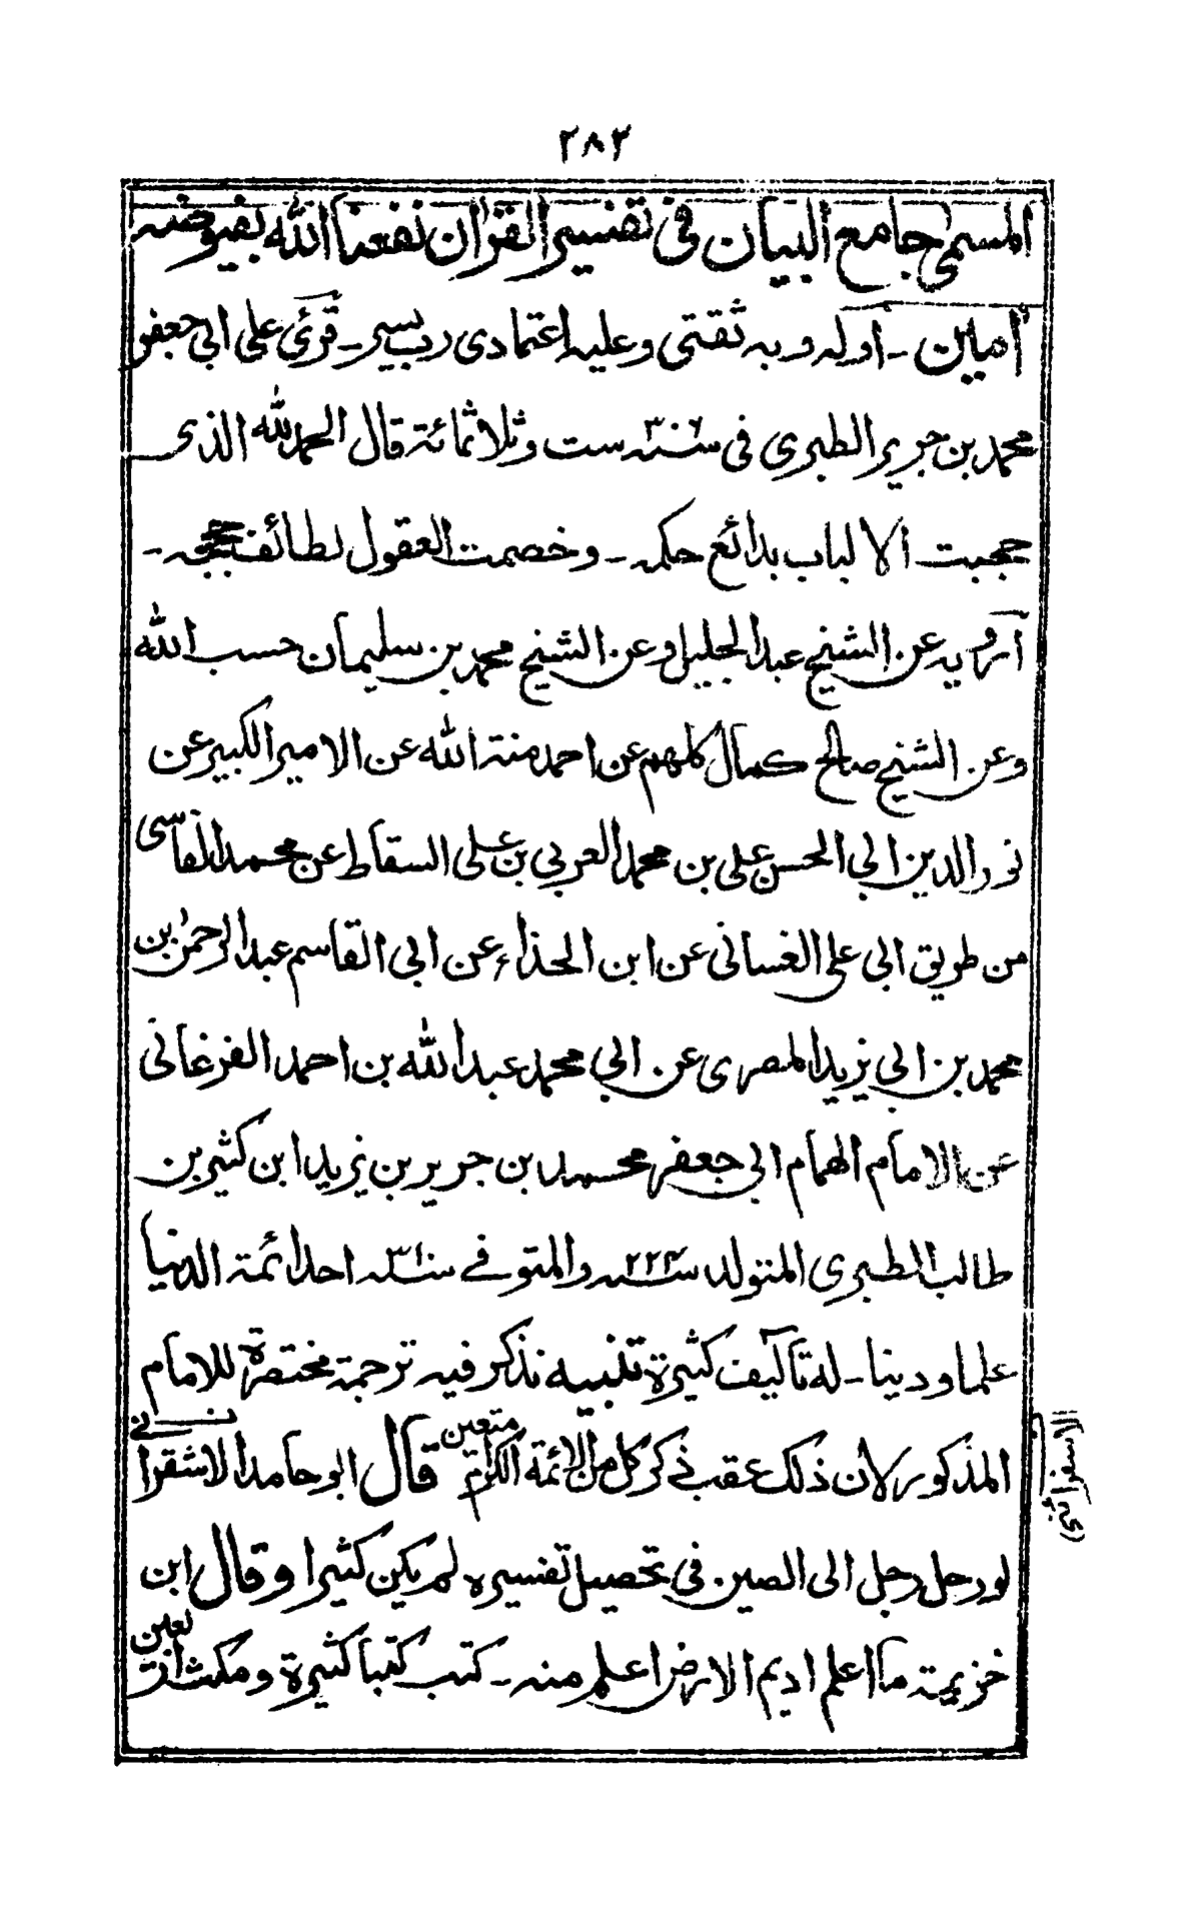 ٢٨٢
المسمى جامع البيان فى تفسير القرآن نفعنا الله بفيوضه
آمين ـ أوله وبه ثقتى وعليه اعتمادى رب يسر ـ قرئ على ابى جعفر
محمد بن جرير الطبرى فى سنة ٣٠٦ ست وثلاثمائة قال الحمد لله الذى
حجبت الالباب بدائع حكمه ـ وخصمت العقول لطائف حججه ـ
آرويه عن الشيخ عبد الجليل وعن الشيخ محمد بن سليمان حسب الله
وعن الشيخ صالح كمال كلهم عن احمد منة الله عن الامير الكبير عن
نور الدين ابى الحسن على بن محمد العربي بن على السقاط عن محمد الفاسى
من طريق ابى على الغسانى عن ابن الحذاء عن ابى القاسم عبد الرحمٰن بن
محمد بن ابى يزيد المصرى عن ابي محمد عبد الله بن احمد الفرغانى
عن الامام الهمام ابى جعفر محمد بن جرير بن يزيد ابن كثير بن
طالب الطبرى المتولد سنة ٢٢٤ والمتوفى سنة ٣١٠ احد ائمة الدنيا
علما ودينا ـ له تآليف كثيرة تنبيه نذكر فيه ترجمة مختصرة للامام
المذكور لان ذلك عقب ذكر كل من الائمة الكرام متعين قال ابو حامد الاشقرانى
الاسفرائنى
لو رحل رجل الى الصين فى تحصيل تفسيره لم يكن كثيرا وقال ابن
خزيمة ما اعلم اديم الارض اعلم منه ـ كتب كتبا كثيرة ومكث